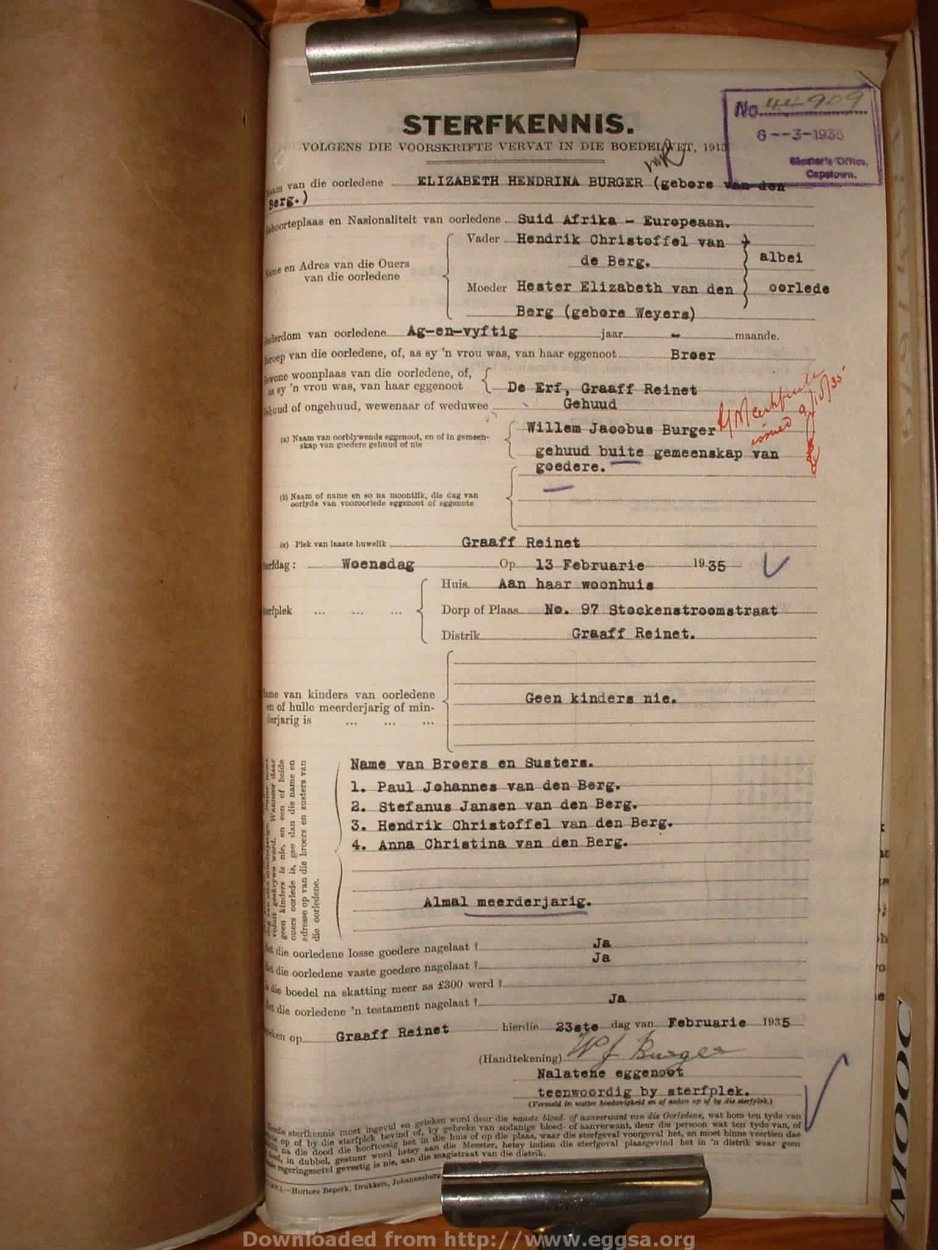 No. 44909
6--3-1935
Master's Office,
Capetown.
STERFKENNIS.
VOLGENS DIE VOORSKRIFTE VERVAT IN DIE BOEDELWET, 1913
van die oorledene ELIZABETH HENDRINA BURGER (gebore van den
Berg.)
en Nasionaliteit van oorledene Suid Afrika - Europeaan.
Vader Hendrik Christoffel van
de Berg.
en Adres van die Ouers
van die oorledene
albei
oorlede
Moeder Hester Elizabeth van den
Berg (gebore Weyers)
van oorledene Ag-en-vyftig jaar - maande.
van die oorledene, of, as sy 'n vrou was, van haar eggenoot Broer
woonplaas van die oorledene, of,
as sy 'n vrou was, van haar eggenoot De Erf, Graaff Reinet
of ongehuud, wewenaar of weduwee Gehuud
issued 9/10/35
(a) Naam van oorblywende eggenoot, en of in gemeen-
skap van goedere gehuud of nie
Willem Jacobus Burger
gehuud buite gemeenskap van
goedere.
(b) Naam of name en so na moontlik, die dag van
oorlyde van vooroorlede eggenoot of eggenote
(c) Plek van laaste huwelik Graaff Reinet
Woensdag Op 13 Februarie 1935
Huis Aan haar woonhuis
Dorp of Plaas No. 97 Stockenstroomstraat
Distrik Graaff Reinet.
van kinders van oorledene
en of hulle meerderjarig of min-
derjarig is ... ... ...
Geen kinders nie.
geen kinders is nie, en een of beide
ouers oorlede is, gee dan die name en
adresse op van die broers en susters van
die oorledene.
Name van Broers en Susters.
1. Paul Johannes van den Berg.
2. Stefanus Jansen van den Berg.
3. Hendrik Christoffel van den Berg.
4. Anna Christina van den Berg.
Almal meerderjarig.
die oorledene losse goedere nagelaat? Ja
die oorledene vaste goedere nagelaat? Ja
die boedel na skatting meer as £300 werd?
die oorledene 'n testament nagelaat? Ja
op Graaff Reinet hierdie 23ste dag van Februarie 1935
(Handtekening) W J Burger
Nalatene eggenoot
teenwoordig by sterfplek.
(Vermeld in watter hoedanigheid en of anten op of by die sterfplek.)
sterfkennis moet ingevul en geteken word deur die naaste bloed- of aanverwant van die Oorledene, wat hom ten tyde van
op of by die sterfplek bevind of, by gebreke van sodanige bloed- of aanverwant, deur die persoon wat ten tyde van, of
na die dood die hooftoesig het in die huis of op die plaas, waar die sterfgeval voorgeval het, en moet binne veertien dae
in dubbel, gestuur word hetsy aan die Meester, hetsy indien die sterfgeval plaasgevind het in 'n distrik waar geen
gevestig is nie, aan die magistraat van die distrik.
Hortors Beperk, Drukkers, Johannesburg
MOOC
Downloaded from http://www.eggsa.org